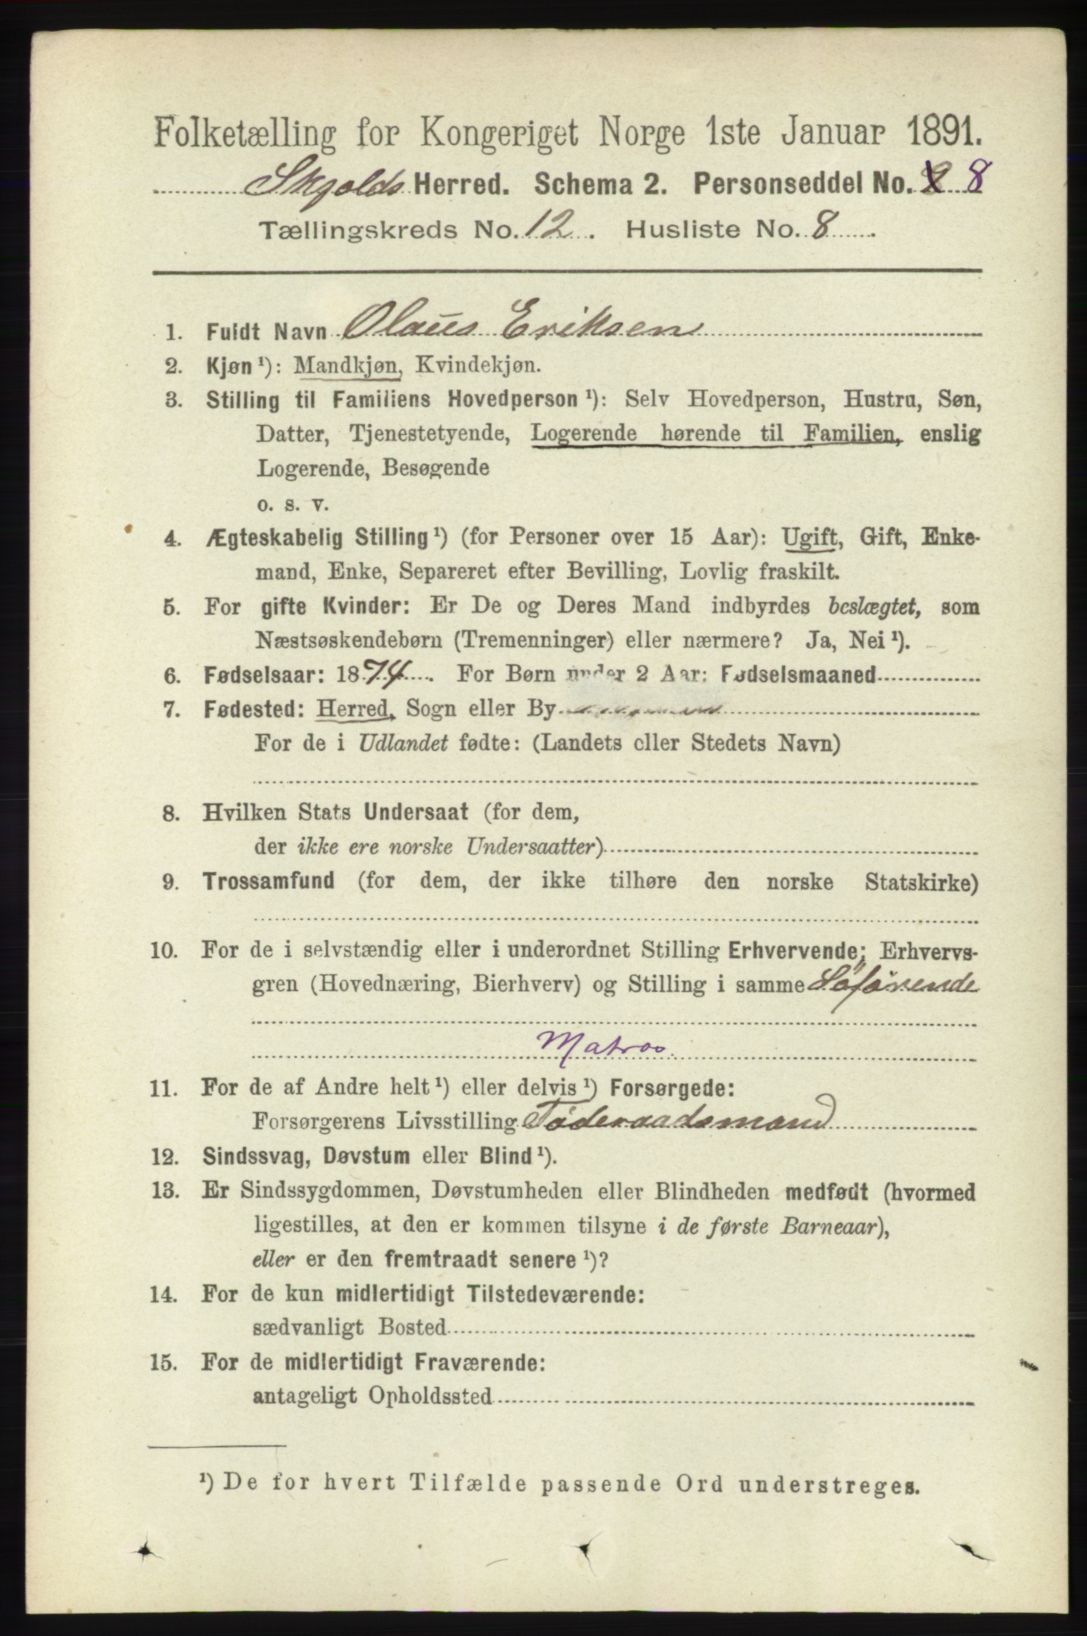 Folketælling for Kongeriget Norge 1ste Januar 1891.
Skjolds Herred. Schema 2. Personseddel No. 8
Tællingskreds No. 12. Husliste No. 8
1. Fuldt Navn Olaus Eriksen
2. Kjøn ¹): Mandkjøn, Kvindekjøn.
3. Stilling til Familiens Hovedperson ¹): Selv Hovedperson, Hustru, Søn,
Datter, Tjenestetyende, Logerende hørende til Familien, enslig
Logerende, Besøgende
o. s. v.
4. Ægteskabelig Stilling ¹) (for Personer over 15 Aar): Ugift, Gift, Enke-
mand, Enke, Separeret efter Bevilling, Lovlig fraskilt.
5. For gifte Kvinder: Er De og Deres Mand indbyrdes beslægtet, som
Næstsøskendebørn (Tremenninger) eller nærmere? Ja, Nei ¹).
6. Fødselsaar: 1874. For Børn under 2 Aar: Fødselsmaaned
7. Fødested: Herred, Sogn eller By
For de i Udlandet fødte: (Landets eller Stedets Navn)
8. Hvilken Stats Undersaat (for dem,
der ikke ere norske Undersaatter)
9. Trossamfund (for dem, der ikke tilhøre den norske Statskirke)
10. For de i selvstændig eller i underordnet Stilling Erhvervende: Erhvervs-
gren (Hovednæring, Bierhverv) og Stilling i samme Søførende
Matros.
11. For de af Andre helt ¹) eller delvis ¹) Forsørgede:
Forsørgerens Livsstilling Føderaadsmand
12. Sindssvag, Døvstum eller Blind ¹).
13. Er Sindssygdommen, Døvstumheden eller Blindheden medfødt (hvormed
ligestilles, at den er kommen tilsyne i de første Barneaar),
eller er den fremtraadt senere ¹)?
14. For de kun midlertidigt Tilstedeværende:
sædvanligt Bosted
15. For de midlertidigt Fraværende:
antageligt Opholdssted
¹) De for hvert Tilfælde passende Ord understreges.